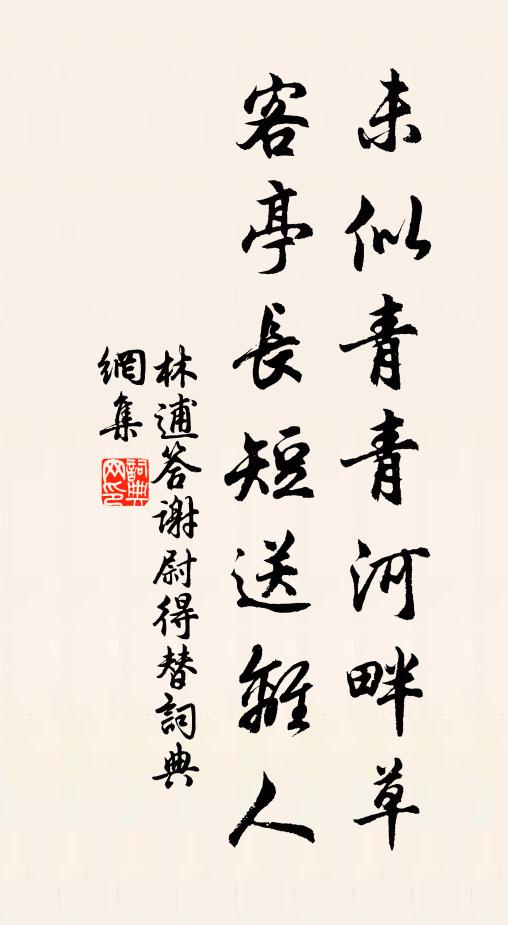 未似青青河畔草
客亭長短送離人
林逋答謝尉得替詞典
網集
詞典
网印